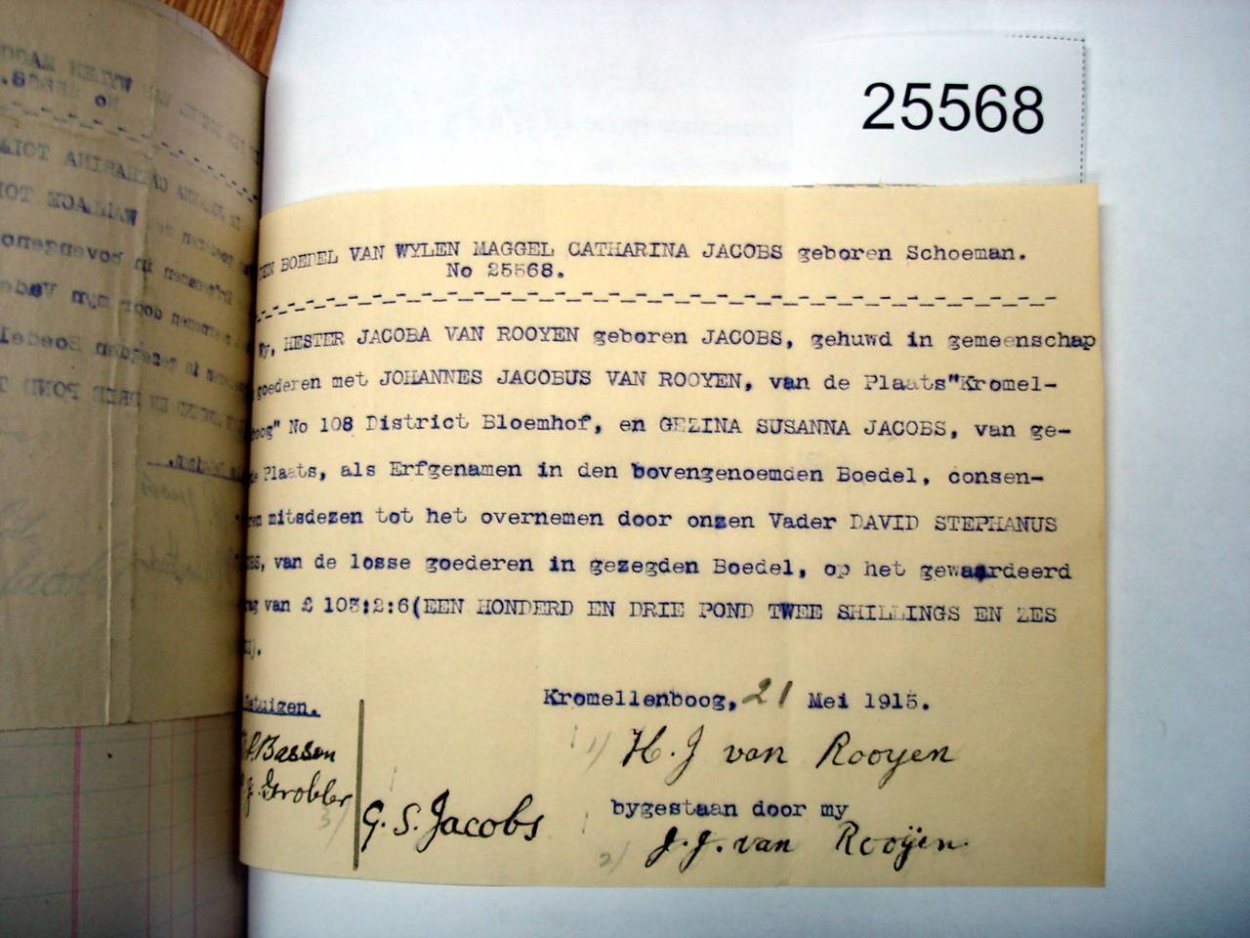 25568
BOEDEL VAN WYLEN MAGGEL CATHARINA JACOBS geboren Schoeman.
No 25568.
HESTER JACOBA VAN ROOYEN geboren JACOBS, gehuwd in gemeenschap
goederen met JOHANNES JACOBUS VAN ROOYEN, van de Plaats"Kromel-
No 108 District Bloemhof, en GEZINA SUSANNA JACOBS, van ge-
Plaats, als Erfgenamen in den bovengenoemden Boedel, consen-
mitsdezen tot het overnemen door onzen Vader DAVID STEPHANUS
van de losse goederen in gezegden Boedel, op het gewaardeerd
van £ 103:2:6(EEN HONDERD EN DRIE POND TWEE SHILLINGS EN ZES
Kromellenboog, 21 Mei 1915.
Getuigen.
1) H. J van Rooyen
Bassen
J. Grobler
bygestaan door my
3) G. S. Jacobs
2) J. J. van Rooijen.